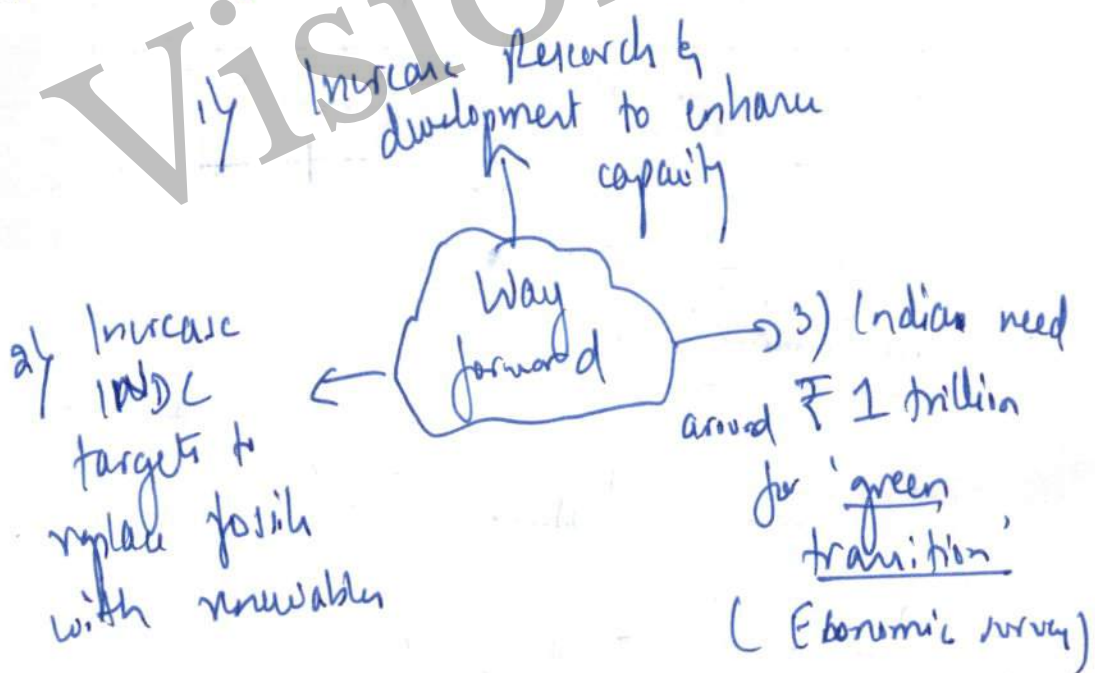 Vision
1) Increase Research &
development to enhance
capacity
Way
forward
2) Increase
INDC
targets to
replace fossils
with renewables
3) Indian need
around ₹ 1 trillion
for 'green
transition'
( Ebonomic survey)